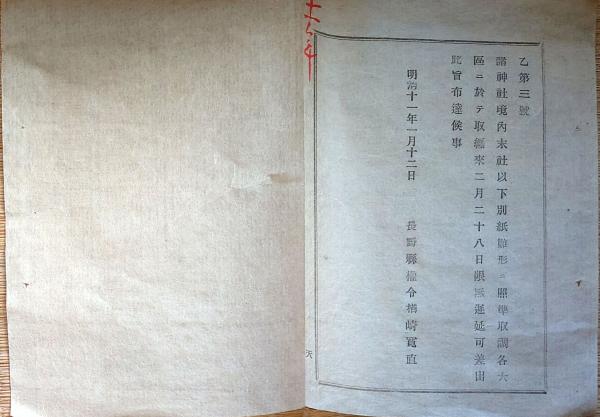 乙第三號
諸神社境內末社以下別紙雛形ニ照準取調各大
區ニ於テ取纒來二月二十八日限無遲延可差出
此旨布達候事
明治十一年一月十二日
長野縣權令楢崎寬直
天
十一年